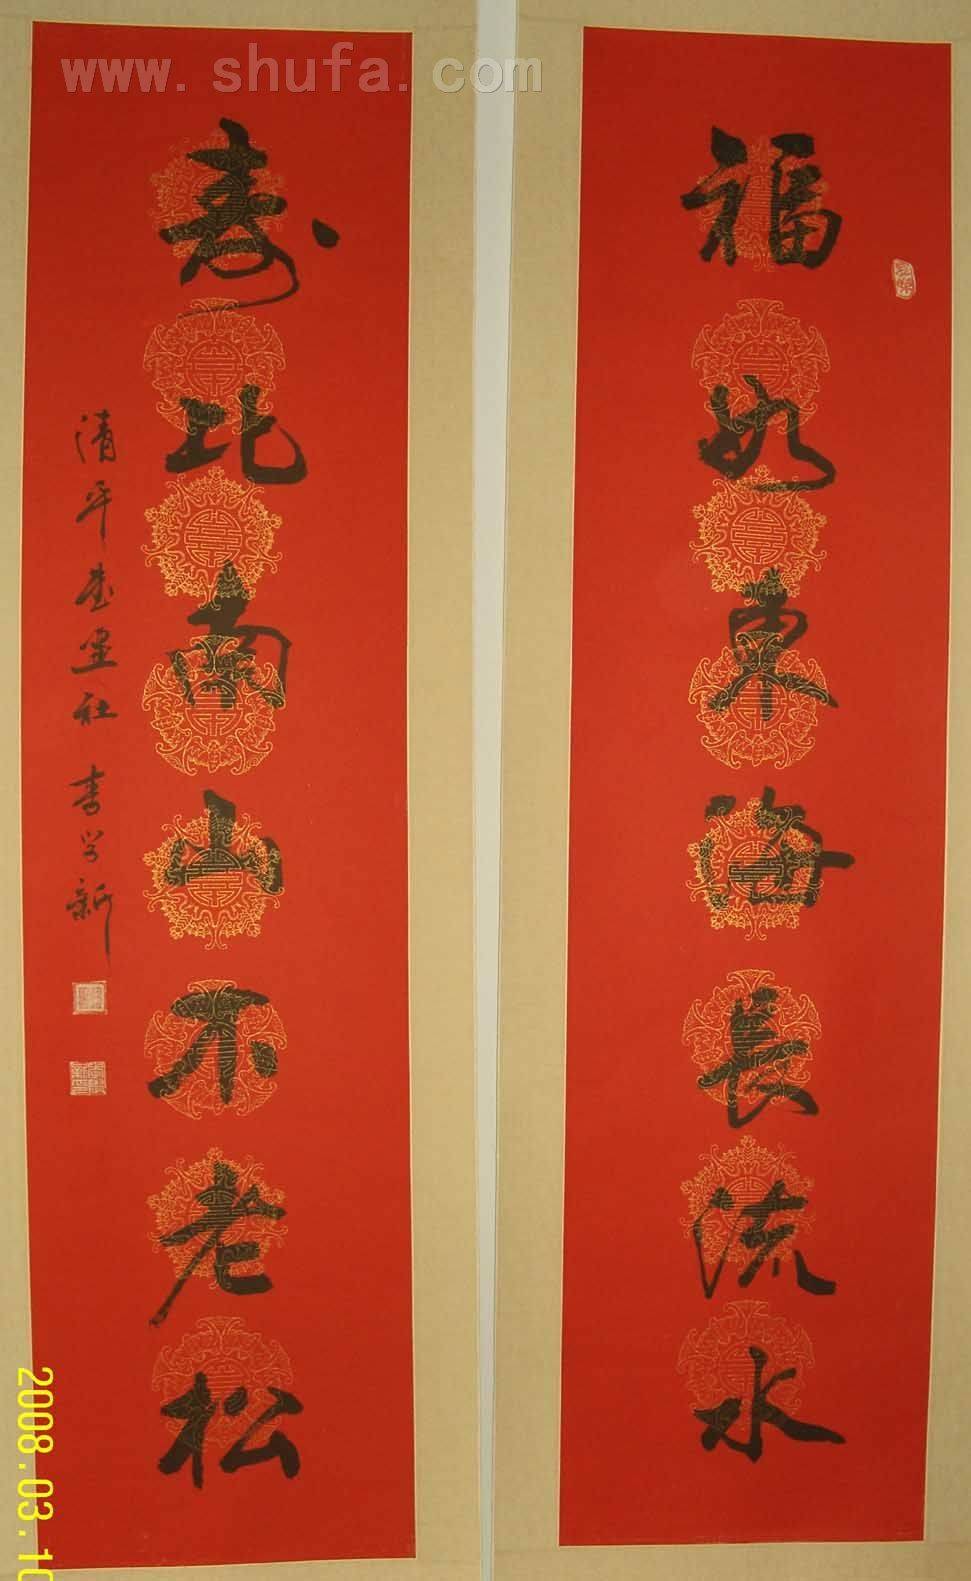 www.shufa.com
福如东海長流水
寿比南山不老松
清平书画社 李学新
2008.03.10